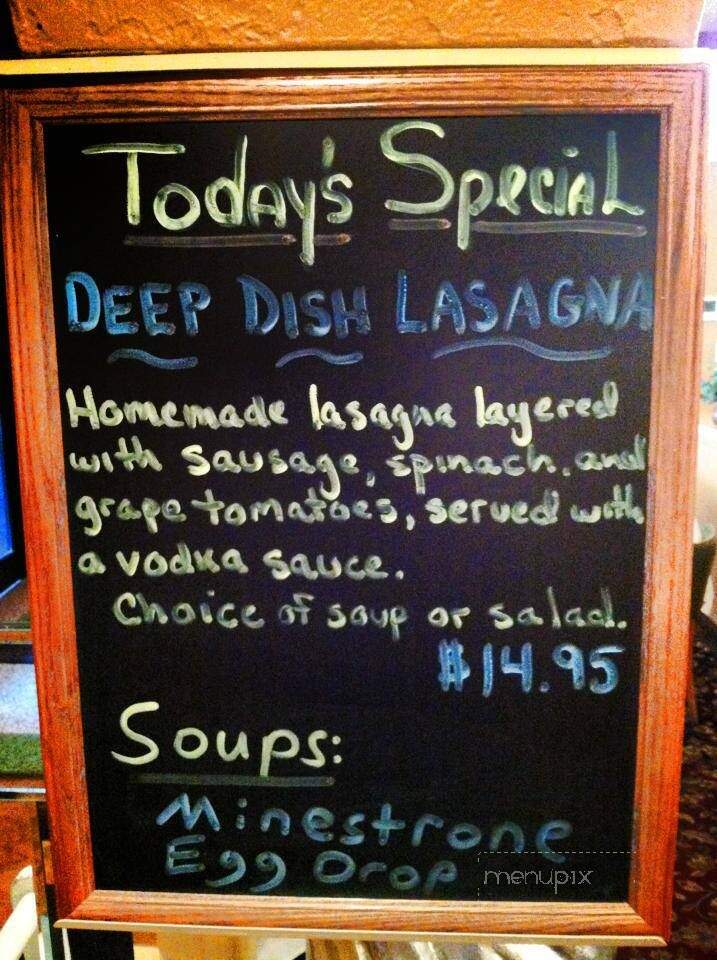 Today's Special
DEEP DISH LASAGNA
Homemade lasagna layered
with sausage, spinach, and
grape tomatoes, served with
a vodka sauce.
Choice of soup or salad.
$14.95
Soups:
Minestrone
Egg Drop
menupix